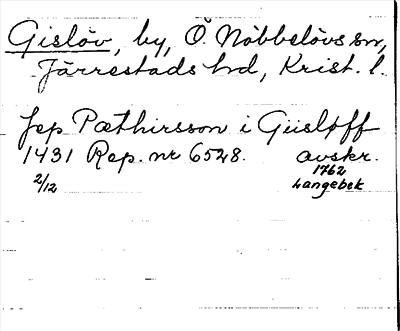 Gislöv, by, Ö. Nöbbelövs sn,
Järrestads hd, Krist. l.
Jep Pæthirsson i Giisløff
1431 Rep. nr 6528. avskr.
2/12 1762
Langebek